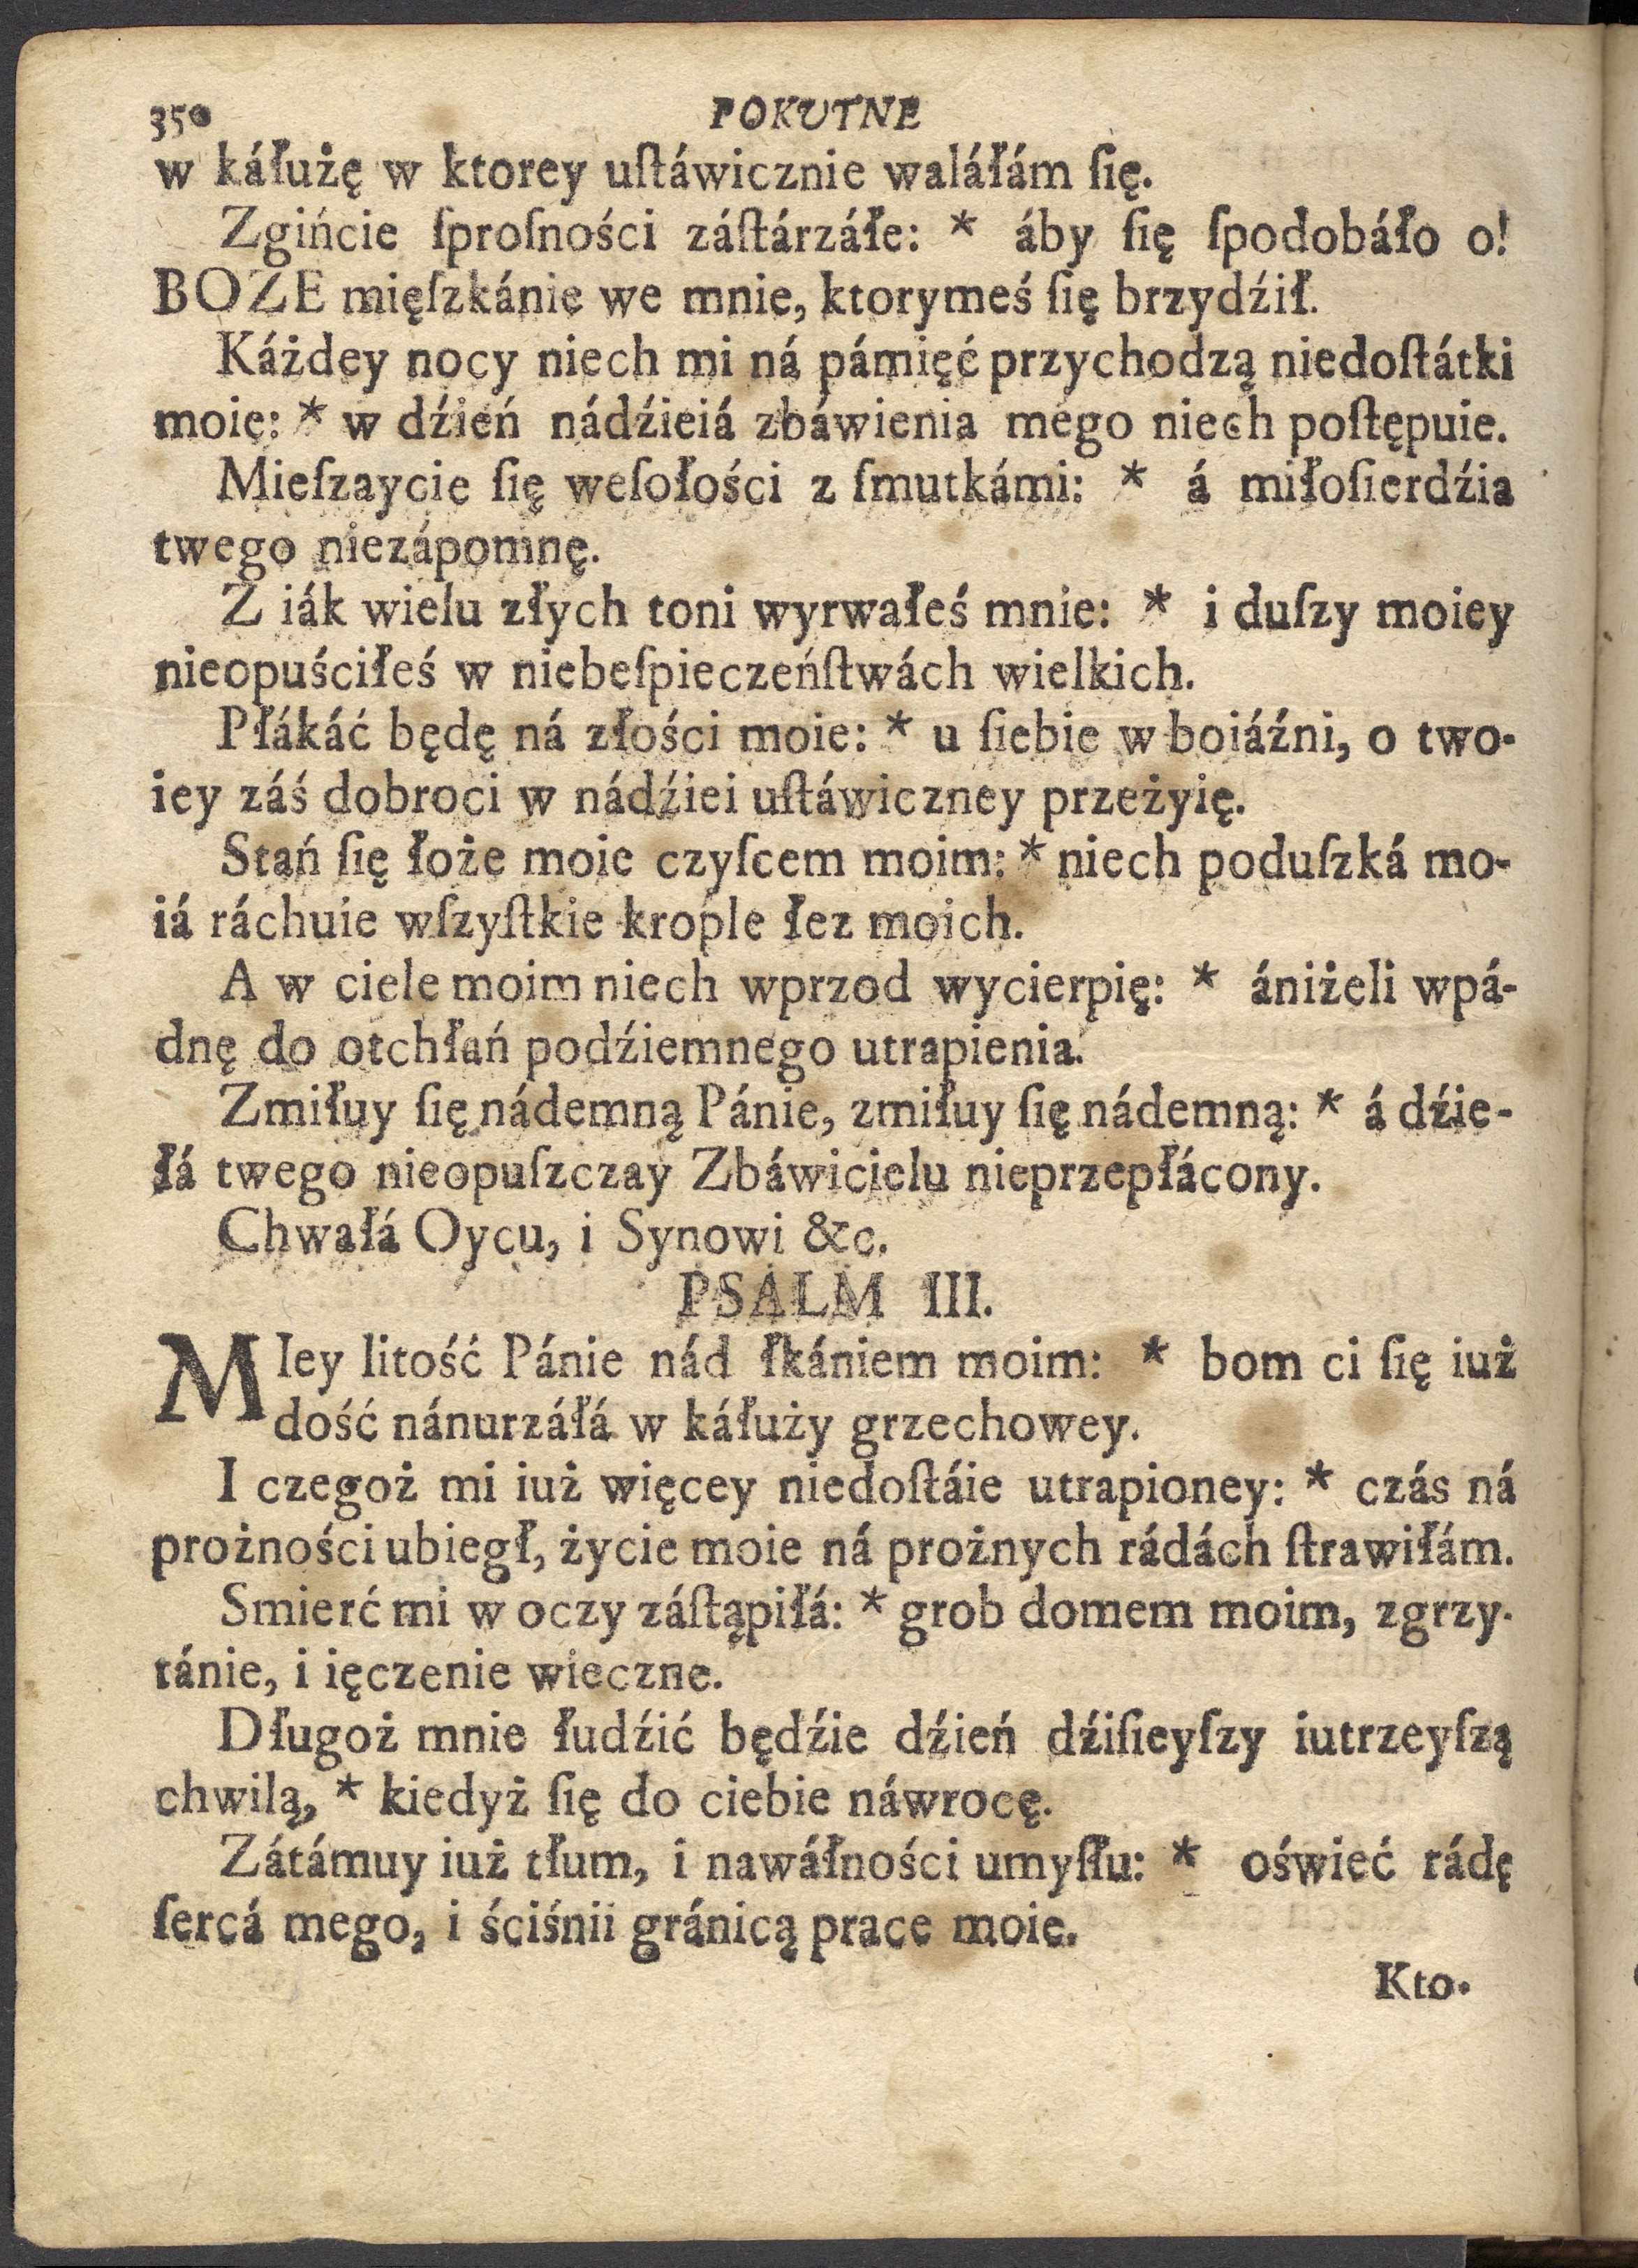 350 POKUTNE
w káłużę w ktorey uſtáwicznie waláłám ſię.
Zgińcie ſproſności záſtárzáłe: * áby ſię ſpodobáło o!
BOZE mięſzkánie we mnie, ktorymeś ſię brzydźił.
Káżdey nocy niech mi ná pámięć przychodzą niedoſtátki
moie: * w dźień nádźieiá zbáwienia mego niech poſtępuie.
Mieſzaycie ſię weſołości z ſmutkámi: * á miłoſierdźia
twego niezápomnę.
Z iák wielu złych toni wyrwałeś mnie: * i duſzy moiey
nieopuściłeś w niebeſpieczeńſtwách wielkich.
Płákáć będę ná złości moie: * u ſiebie w boiáźni, o two-
iey záś dobroci w nádźiei uſtáwiczney przeżyię.
Stań ſię łoże moie czyſcem moim: * niech poduſzká mo-
iá ráchuie wſzyſtkie krople łez moich.
A w ciele moim niech wprzod wycierpię: * ániżeli wpá-
dnę do otchłań podźiemnego utrapienia.
Zmiłuy ſię nádemną Pánie, zmiłuy ſię nádemną: * á dźie-
łá twego nieopuſzczay Zbáwicielu nieprzepłácony.
Chwałá Oycu, i Synowi &c.
PSALM III.
MIey litość Pánie nád łkániem moim: * bom ci ſię iuż
dość nánurzáłá w káłuży grzechowey.
I czegoż mi iuż więcey niedoſtáie utrapioney: * czás ná
prożności ubiegł, życie moie ná prożnych rádách ſtrawiłám.
Smierć mi w oczy záſtąpiłá: * grob domem moim, zgrzy-
tánie, i ięczenie wieczne.
Długoż mnie łudźić będźie dźień dźiſieyſzy iutrzeyſzą
chwilą, * kiedyż ſię do ciebie náwrocę.
Zátámuy iuż tłum, i nawáłności umyſłu: * oświeć rádę
ſercá mego, i ściśnii gránicą prace moie.
Kto-